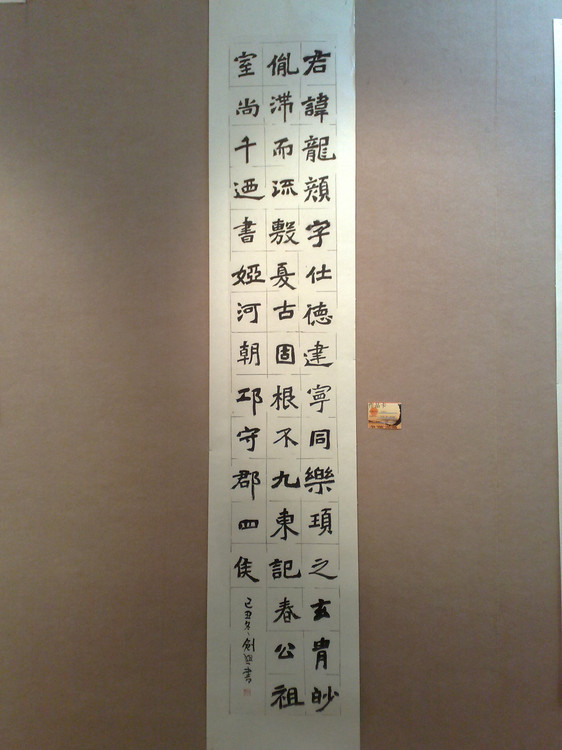 君諱龍顏字仕德建寧同樂頊之玄胄眇
胤滯而流敷夏古固根不九東記春公祖
室尚千迺書婭河朝邛守郡四侯
己丑冬劍書